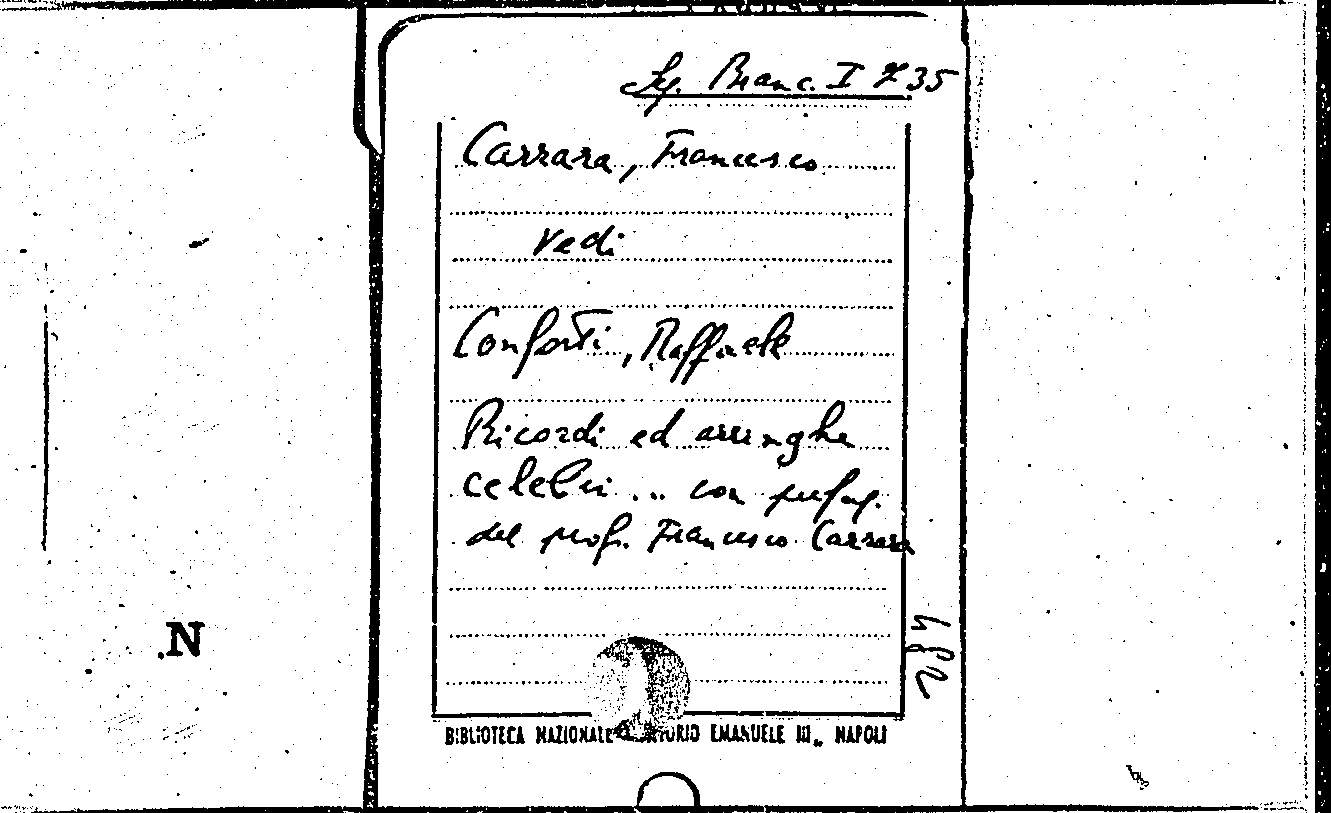 Sg. Branc. I Z 35
Carrara, Francesco
Vedi
Conforti, Raffaele
Ricordi ed arringhe
celebri ... con prefaz.
del prof. Francesco Carrara
BIBLIOTECA NAZIONALE VITTORIO EMANUELE III„ NAPOLI
N